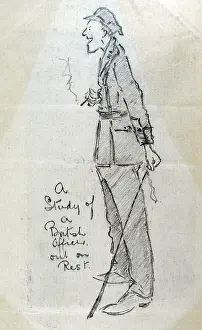 A
Study of
a
British
Officer
out on
Rest.